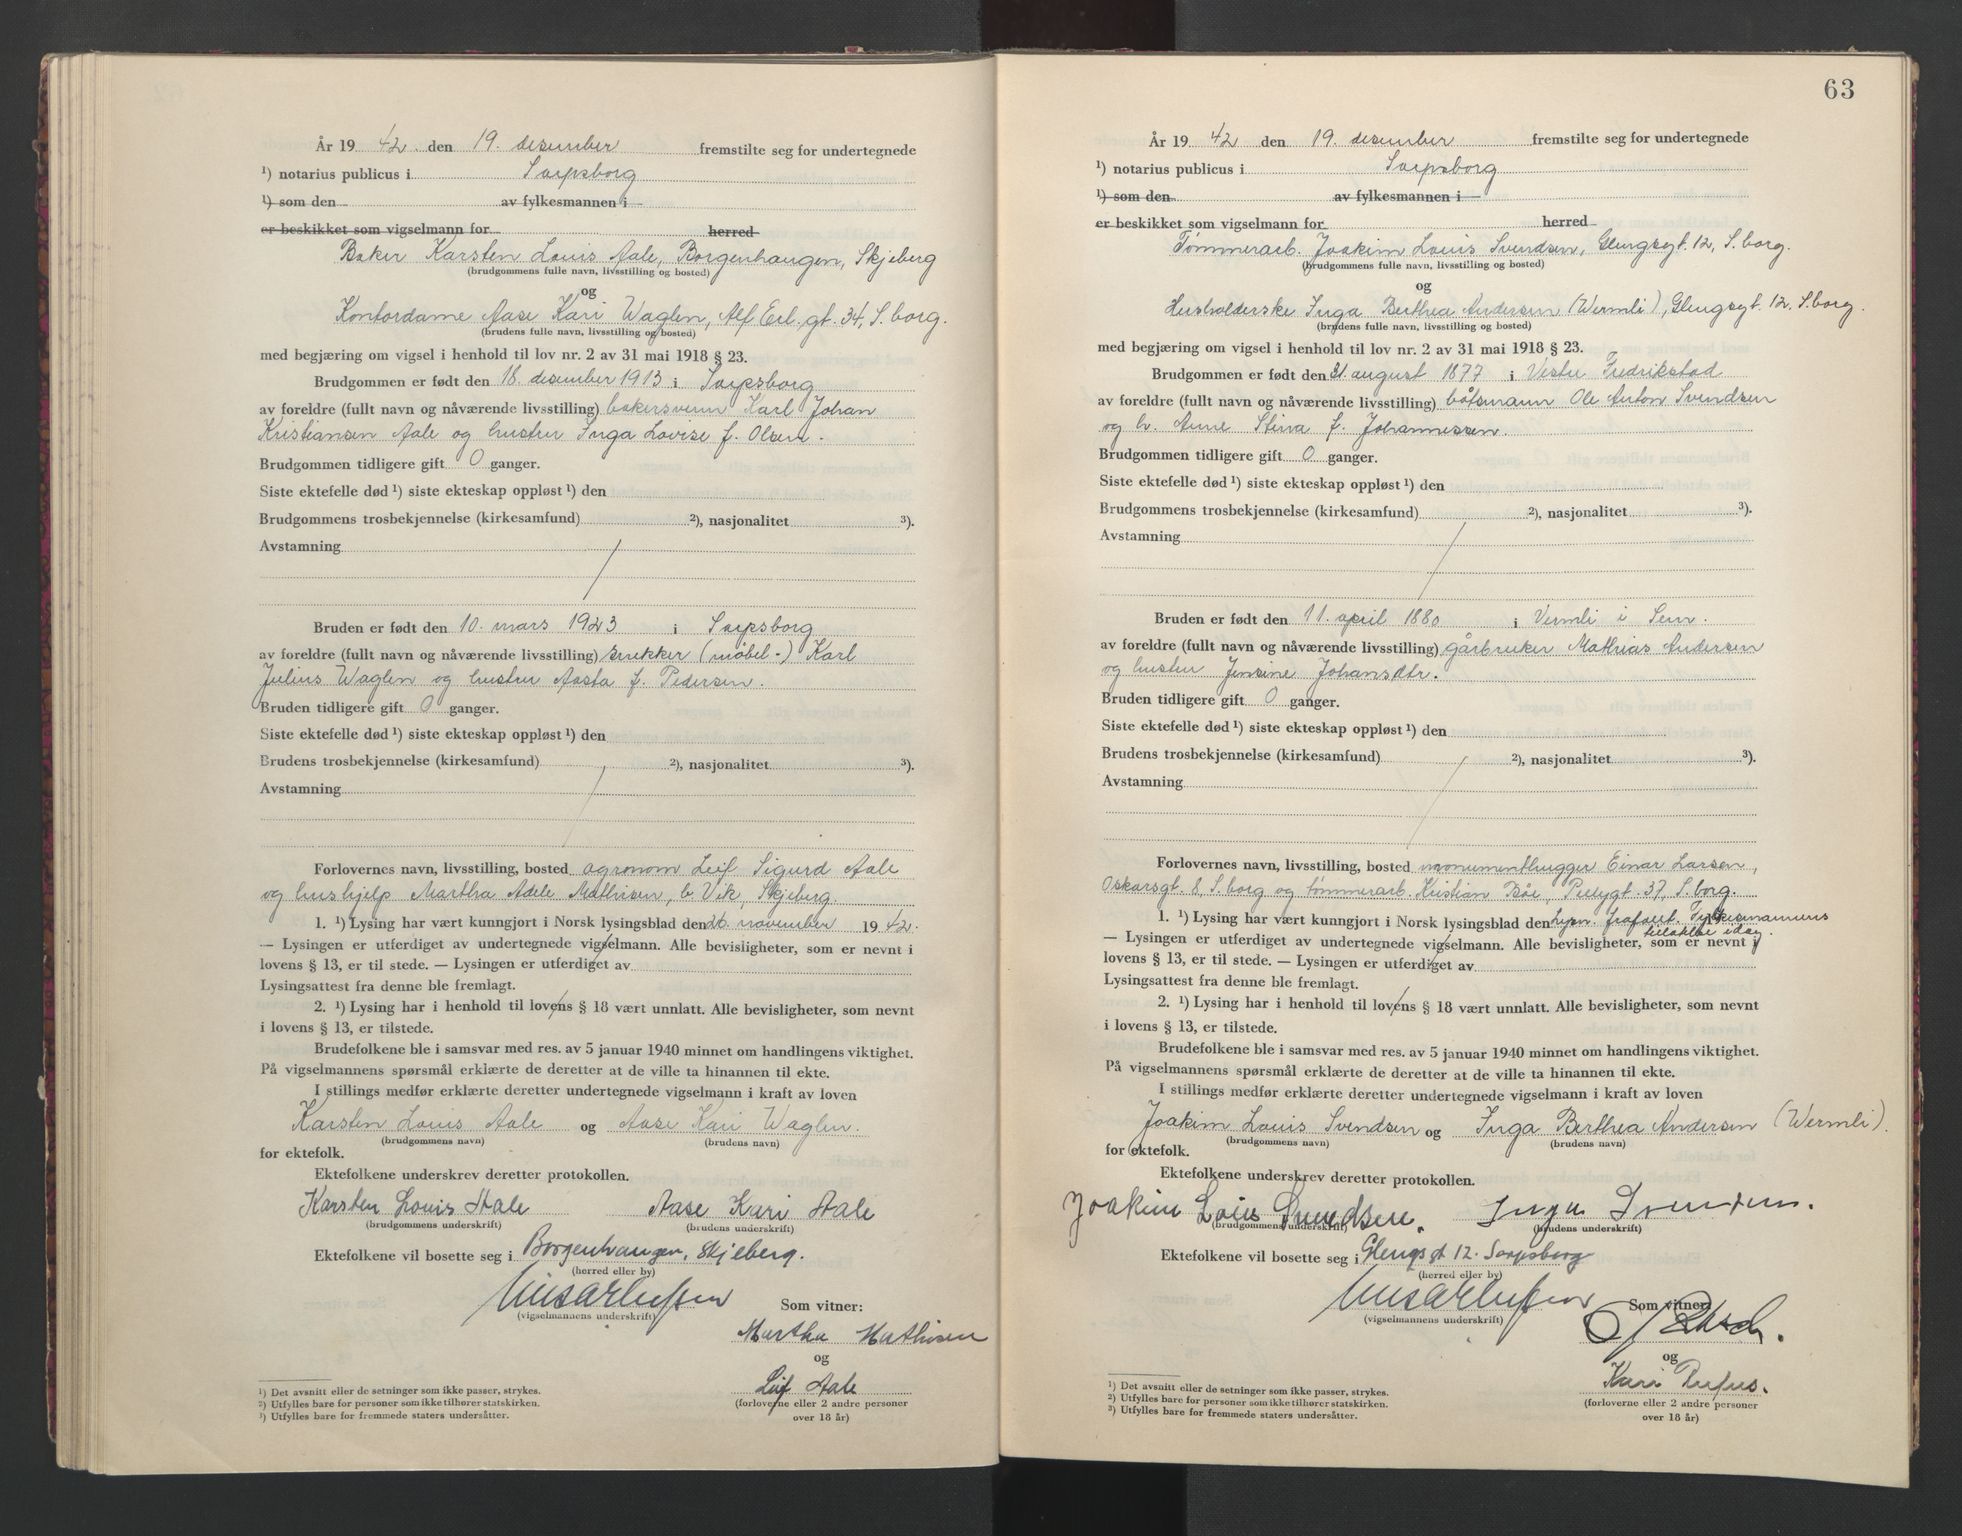 År 19 42 den 19. desember fremstilte seg for undertegnede
¹) notarius publicus i Sarpsborg
¹) som den av fylkesmannen i
er beskikket som vigselmann for herred
Baker Karsten Louis Aale, Borgenhaugen, Skjeberg
(brudgommens fulle navn, livsstilling og bosted)
og
Kontordame Aase Kari Waglen, Alf Erl. gt. 34, S.borg.
(brudens fulle navn, livsstilling og bosted)
med begjæring om vigsel i henhold til lov nr. 2 av 31 mai 1918 § 23.
Brudgommen er født den 18. desember 1913 i Sarpsborg
av foreldre (fullt navn og nåværende livsstilling) bakersvenn Karl Johan
Kristiansen Aale og hustru Inga Lovise f. Olsen.
Brudgommen tidligere gift 0 ganger.
Siste ektefelle død ¹) siste ekteskap oppløst ¹) den
Brudgommens trosbekjennelse (kirkesamfund) ²), nasjonalitet ³).
Avstamning
Bruden er født den 10. mars 1923 i Sarpsborg
av foreldre (fullt navn og nåværende livsstilling) snekker (møbel-) Karl
Julius Waglen og hustru Aasta f. Pedersen.
Bruden tidligere gift 0 ganger.
Siste ektefelle død ¹) siste ekteskap oppløst ¹) den
Brudens trosbekjennelse (kirkesamfund) ²), nasjonalitet ³).
Avstamning
Forlovernes navn, livsstilling, bosted agronom Leif Sigurd Aale
og hushjelp Martha Adele Mathisen, b. Vik, Skjeberg.
1. ¹) Lysing har vært kunngjort i Norsk lysingsblad den 26. november 1942.
— Lysingen er utferdiget av undertegnede vigselmann. Alle bevisligheter, som er nevnt i
lovens § 13, er til stede. — Lysingen er utferdiget av
Lysingsattest fra denne ble fremlagt.
2. ¹) Lysing har i henhold til lovens § 18 vært unnlatt. Alle bevisligheter, som nevnt
i lovens § 13, er tilstede.
Brudefolkene ble i samsvar med res. av 5 januar 1940 minnet om handlingens viktighet.
På vigselmannens spørsmål erklærte de deretter at de ville ta hinannen til ekte.
I stillings medfør erklærte deretter undertegnede vigselmann i kraft av loven
Karsten Louis Aale og Aase Kari Waglen.
(brudgommens navn) (brudens navn)
for ektefolk.
Ektefolkene underskrev deretter protokollen.
Karsten Louis Aale Aase Kari Aale
(brudgommens underskrift) (brudens underskrift)
Ektefolkene vil bosette seg i Borgenhaugen, Skjeberg.
(herred eller by)
(vigselmannens underskrift) Som vitner:
Martha Mathisen
og
Leif Aale
(forloverne eller 2 andre personer
over 18 år)
¹) Det avsnitt eller de setninger som ikke passer, strykes.
²) Utfylles bare for personer som ikke tilhører statskirken.
³) Utfylles bare for fremmede staters undersåtter.
63
År 19 42 den 19. desember fremstilte seg for undertegnede
¹) notarius publicus i Sarpsborg
¹) som den av fylkesmannen i
er beskikket som vigselmann for herred
Tømmerarb. Joakim Louis Svendsen, Glengsgt. 12, S.borg.
(brudgommens fulle navn, livsstilling og bosted)
og
Husholderske Inga Berthea Andersen (Wermli), Glengsgt. 12. S.borg.
(brudens fulle navn, livsstilling og bosted)
med begjæring om vigsel i henhold til lov nr. 2 av 31 mai 1918 § 23.
Brudgommen er født den 31. august 1877 i Vestre Fredrikstad
av foreldre (fullt navn og nåværende livsstilling) båtsmann Ole Anton Svendsen
og h. Anne Stina f. Johannessen.
Brudgommen tidligere gift 0 ganger.
Siste ektefelle død ¹) siste ekteskap oppløst ¹) den
Brudgommens trosbekjennelse (kirkesamfund) ²), nasjonalitet ³).
Avstamning
Bruden er født den 11. april 1880 i Vermli i Sem.
av foreldre (fullt navn og nåværende livsstilling) gårbruker Mathias Andersen
og hustru Jensine Johansdtr.
Bruden tidligere gift 0 ganger.
Siste ektefelle død ¹) siste ekteskap oppløst ¹) den
Brudens trosbekjennelse (kirkesamfund) ²), nasjonalitet ³).
Avstamning
Forlovernes navn, livsstilling, bosted monumenthugger Einar Larsen,
Oskarsgt. 8, S.borg og tømmerarb. Kristian Bøe, Pellygt. 37, S.borg.
1. ¹) Lysing har vært kunngjort i Norsk lysingsblad den Fylkesmannens
idag.
— Lysingen er utferdiget av undertegnede vigselmann. Alle bevisligheter, som er nevnt i
lovens § 13, er til stede. — Lysingen er utferdiget av
Lysingsattest fra denne ble fremlagt.
2. ¹) Lysing har i henhold til lovens § 18 vært unnlatt. Alle bevisligheter, som nevnt
i lovens § 13, er tilstede.
Brudefolkene ble i samsvar med res. av 5 januar 1940 minnet om handlingens viktighet.
På vigselmannens spørsmål erklærte de deretter at de ville ta hinannen til ekte.
I stillings medfør erklærte deretter undertegnede vigselmann i kraft av loven
Joakim Louis Svendsen og Inga Berthea Andersen (Wermli).
(brudgommens navn) (brudens navn)
for ektefolk.
Ektefolkene underskrev deretter protokollen.
Joakim Louis Svendsen. Inga Svendsen.
(brudgommens underskrift) (brudens underskrift)
Ektefolkene vil bosette seg i Glengsgt 12. Sarpsborg
(herred eller by)
(vigselmannens underskrift) Som vitner:
og
Kari
(forloverne eller 2 andre personer
over 18 år)
¹) Det avsnitt eller de setninger som ikke passer, strykes.
²) Utfylles bare for personer som ikke tilhører statskirken.
³) Utfylles bare for fremmede staters undersåtter.